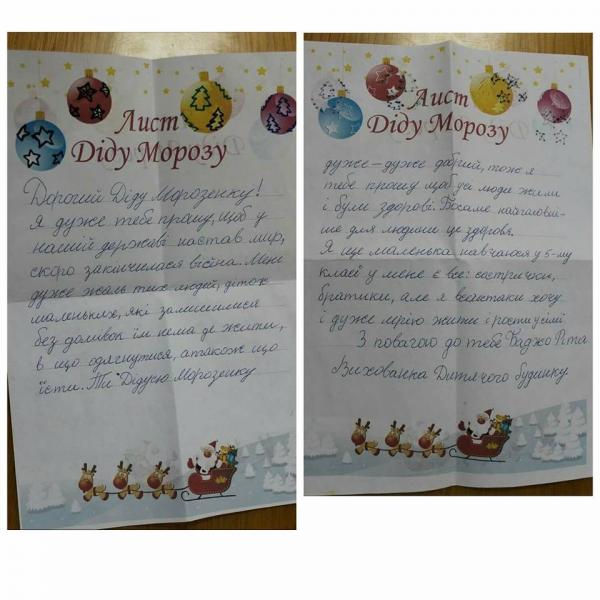 Лист
Діду Морозу
Дорогий Діду Морозенку!
Я дуже тебе прошу, щоб у
нашій державі настав мир,
скоро закінчилася війна. Мені
дуже жаль тих людей, діток
маленьких, які залишилися
без домівок їм нема де жити,
в що одягнутися, а також що
їсти. Ти Дідусю Морозенку
Лист
Діду Морозу
дуже-дуже добрий, тож я
тебе прошу щоб усі люди жили
і були здорові. Бо саме найголовні-
ше для людини це здоровя.
Я ще маленька навчаюся у 5-му
класі у мене є все: сестрички,
братики, але я всетаки хочу
і дуже мрію жити і рости у сімї
З повагою до тебе Баджо Рита
Вихованка Дитячого будинку